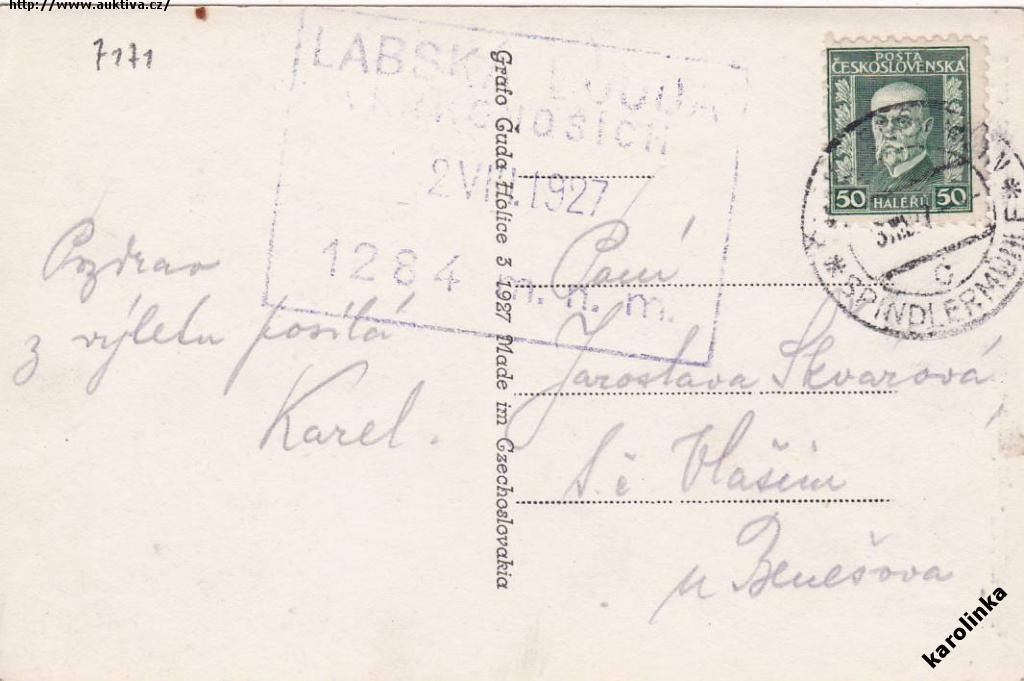 http://www.auktiva.cz/
7171
LABSKÁ BOUDA
2 VIII. 1927
1284 m. n. m.
Pozdrav
z výletu posílá
Karel.
Grafo Čuda Holice 3 1927 Made im Czechoslovakia
POŠTA
ČESKOSLOVENSKÁ
50 HALÉŘŮ 50
* SPINDLERMÜHLE *
C
Paní
Jaroslava Škvarová
Vlašim
u Benešova
karolinka